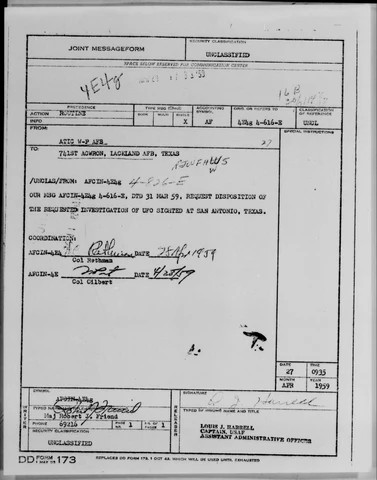 JOINT MESSAGEFORM
SECURITY CLASSIFICATION
UNCLASSIFIED
SPACE BELOW RESERVED FOR COMMUNICATION CENTER
4E4g
PRECEDENCE
TYPE MSG (Check)
ACCOUNTING SYMBOL
ORIG. OR REFERS TO
CLASSIFICATION OF REFERENCE
ACTION ROUTINE
BOOK MULTI SINGLE
X AF 4E4g 4-616-E UNCL
INFO
FROM:
SPECIAL INSTRUCTIONS
ATIC W-P AFB
27
TO:
741ST ACWRON, LACKLAND AFB, TEXAS
/UNCLAS/FROM: AFCIN-4E4g 4-826-E
OUR MSG AFCIN-4E4g 4-616-E, DTD 31 MAR 59. REQUEST DISPOSITION
OF THE REQUESTED INVESTIGATION OF UFO SIGHTED AT SAN ANTONIO, TEXAS.
COORDINATION:
AFCIN-4E4 DATE 25 Apr 1959
Col Rethman
AFCIN-4E DATE 4/25/59
Col Gilbert
DATE TIME
27 0935
MONTH YEAR
APR 1959
SYMBOL
AFCIN-4E4g
SIGNATURE
TYPED NAME
Maj Robert J. Friend
TYPED (or stamped) NAME AND TITLE
PHONE 69216
PAGE NR. 1
NR. OF PAGES 1
WRITER
RELEASER
LOUIS J. HARRELL
CAPTAIN, USAF
ASSISTANT ADMINISTRATIVE OFFICER
SECURITY CLASSIFICATION
UNCLASSIFIED
DD FORM 173
REPLACES DD FORM 173, 1 OCT 49, WHICH WILL BE USED UNTIL EXHAUSTED